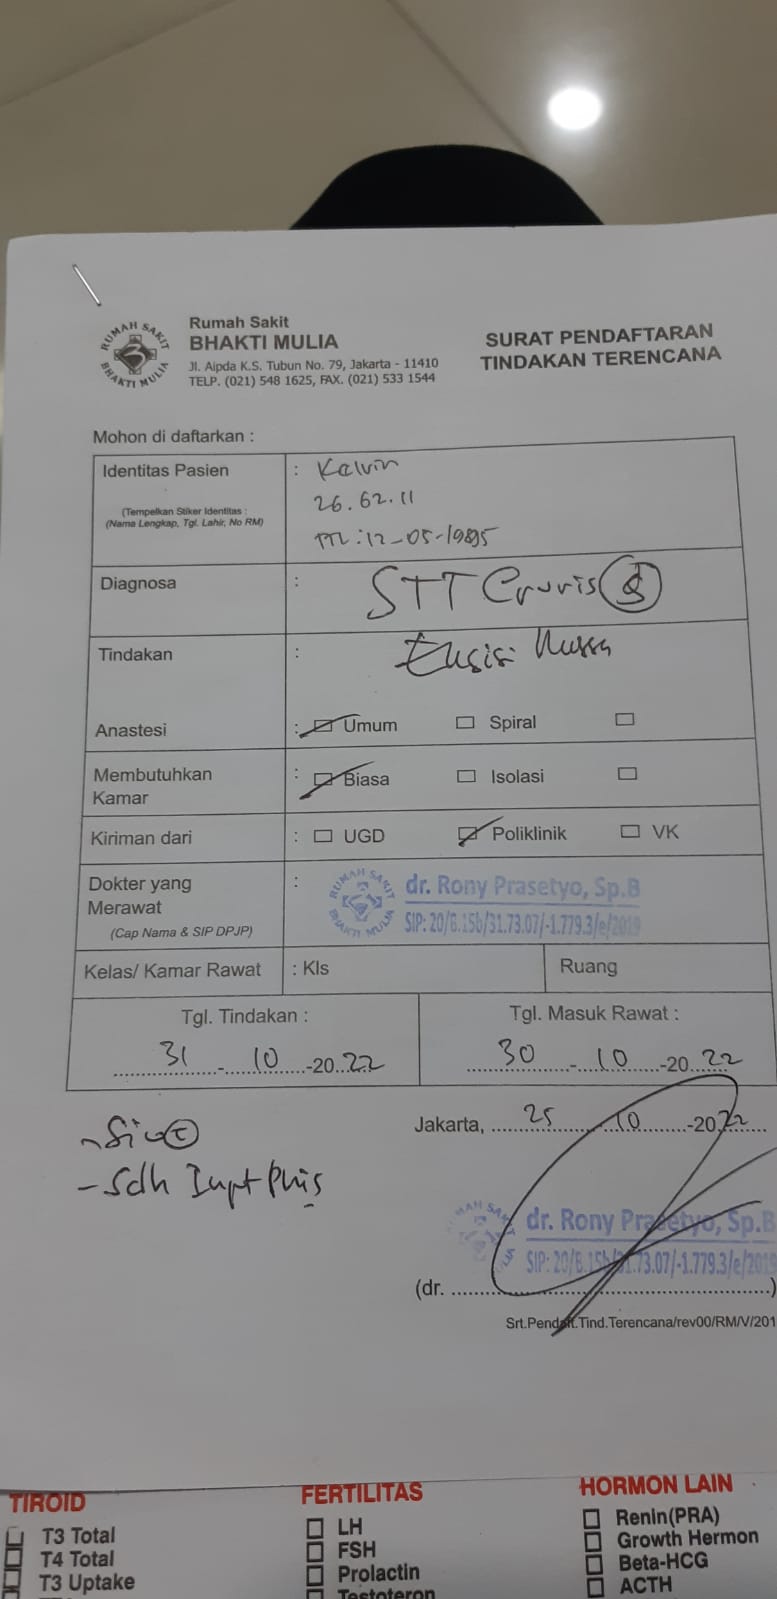 RUMAH SAKIT
BHAKTI MULIA
Rumah Sakit
BHAKTI MULIA
Jl. Aipda K.S. Tubun No. 79, Jakarta - 11410
TELP. (021) 548 1625, FAX. (021) 533 1544
SURAT PENDAFTARAN
TINDAKAN TERENCANA
Mohon di daftarkan :
Identitas Pasien : Kelvin
26.62.11
(Tempelkan Stiker Identitas :
(Nama Lengkap, Tgl. Lahir, No RM)
TTL : 12-05-
Diagnosa : STT Cruris
Tindakan :
Anastesi : Umum Spiral
Membutuhkan
Kamar : Biasa Isolasi
Kiriman dari : UGD Poliklinik VK
Dokter yang
Merawat :
(Cap Nama & SIP DPJP)
RUMAH SAKIT
BHAKTI MULIA
dr. Rony Prasetyo, Sp.B
SIP: 20/B.15b/31.73.07/-1.779.3/e/2019
Kelas/ Kamar Rawat : Kls Ruang
Tgl. Tindakan : Tgl. Masuk Rawat :
31 - 10 -20 22 30 - 10 -20 22
Jakarta, 25 - 10 -20 22
- Sdh
dr. Rony Prasetyo, Sp.B
SIP: 20/B.15b/31.73.07/-1.779.3/e/2019
(dr. )
Srt.Pendaft.Tind.Terencana/rev00/RM/V/201
TIROID
T3 Total
T4 Total
T3 Uptake
FERTILITAS
LH
FSH
Prolactin
Testoteron
HORMON LAIN
Renin(PRA)
Growth Hermon
Beta-HCG
ACTH